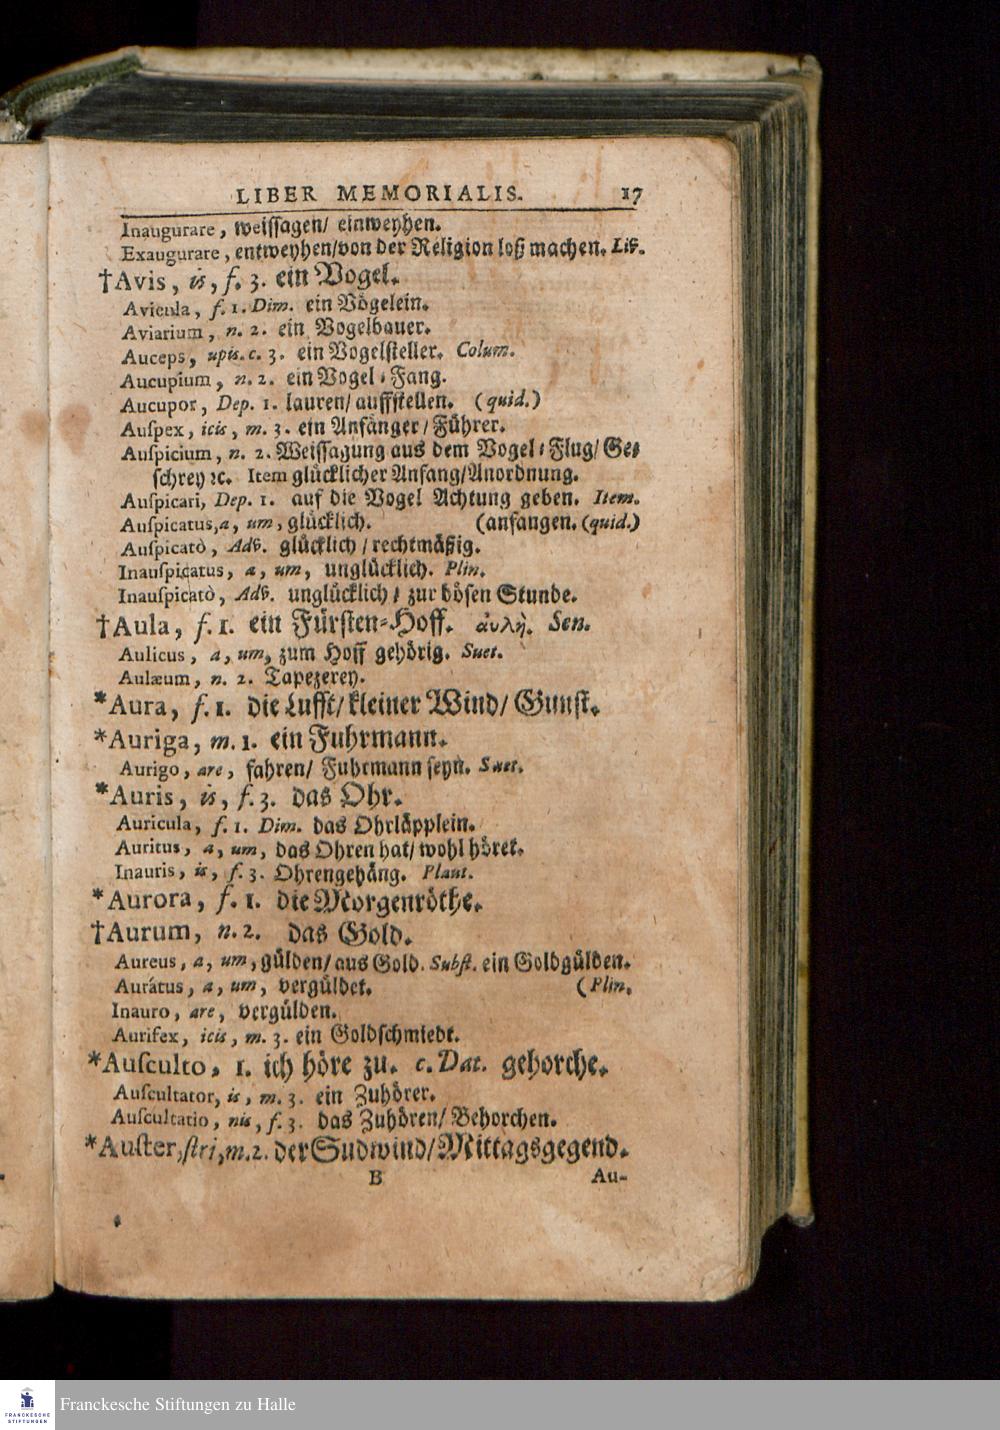 LIBER MEMORIALIS. 17
Inaugurare, weiſſagen/ einweyhen.
Exaugurare, entweyhen/von der Religion loß machen. Liv.
†Avis, is, f. 3. ein Vogel.
Avicula, f. 1. Dim. ein Vögelein.
Aviarium, n. 2. ein Vogelbauer.
Auceps, upis. c. 3. ein Vogelſteller. Colum.
Aucupium, n. 2. ein Vogel⸗Fang.
Aucupor, Dep. 1. lauren/ auffſtellen. (quid.)
Auſpex, icis, m. 3. ein Anfänger/ Führer.
Auſpicium, n. 2. Weiſſagung aus dem Vogel⸗Flug/ Ge⸗
ſchrey ꝛc. Item glücklicher Anfang/Anordnung.
Auſpicari, Dep. 1. auf die Vogel Achtung geben. Item.
Auſpicatus, a, um, glücklich. (anfangen. (quid.)
Auſpicatò, Adv. glücklich / rechtmäßig.
Inauſpicatus, a, um, unglücklich. Plin.
Inauſpicatò, Adv. unglücklich⸗ zur bösen Stunde.
†Aula, f. 1. ein Fürſten⸗Hoff. ἀυλὴ. Sen.
Aulicus, a, um, zum Hoff gehörig. Suet.
Aulæum, n. 2. Tapezerey.
*Aura, f. 1. die Lufft/ kleiner Wind/ Gunſt.
*Auriga, m. 1. ein Fuhrmann.
Aurigo, are, fahren/ Fuhrmann ſeyn. Suet.
*Auris, is, f. 3. das Ohr.
Auricula, f. 1. Dim. das Ohrläpplein.
Auritus, a, um, das Ohren hat/ wohl höret.
Inauris, is, f. 3. Ohrengehäng. Plaut.
*Aurora, f. 1. die Morgenröthe.
†Aurum, n. 2. das Gold.
Aureus, a, um, gülden/ aus Gold. Subſt. ein Goldgülden.
Aurátus, a, um, vergüldet. (Plin.
Inauro, are, vergülden.
Aurifex, icis, m. 3. ein Goldſchmiedt.
*Auſculto, 1. ich höre zu. c. Dat. gehorche.
Auſcultator, is, m. 3. ein Zuhörer.
Auſcultatio, nis, f. 3. das Zuhören/ Behorchen.
*Auſter, ſtri, m. 2. der Sudwind/ Mittagsgegend.
B Au-
FRANCKESCHE
STIFTUNGEN
Franckesche Stiftungen zu Halle